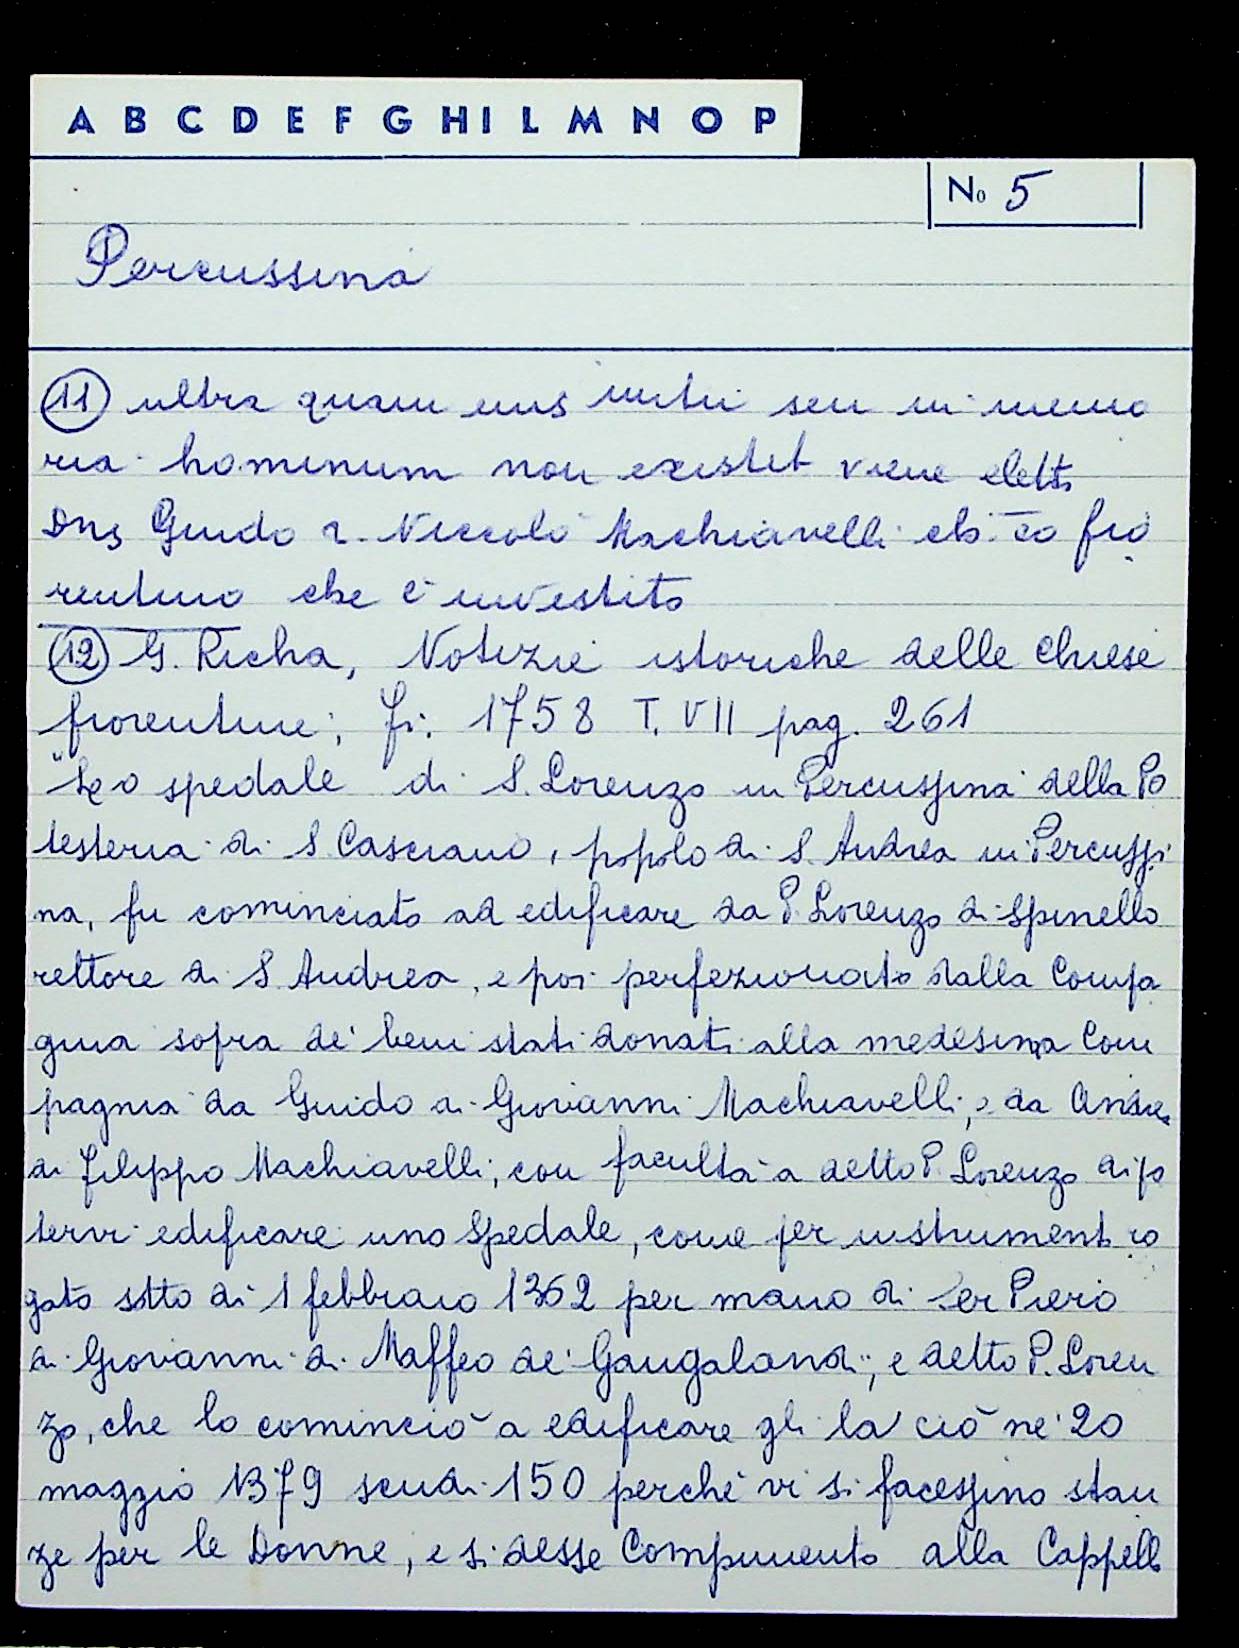 A B C D E F G H I L M N O P
No 5
Percussina
(11) ultra quam eius initii seu in memo
ria hominum non existit viene eletto
Dns Guido Niccolò Machiavelli fio
rentino che è investito
(12) G. Richa, Notizie istoriche delle Chiese
fiorentine; fi: 1758 T. VII pag. 261
"Lo spedale di S. Lorenzo in Percussina della Po
testeria di S Casciano, popolo di S. Andrea in Percussi
na, fu cominciato ad edificare da P. Lorenzo di Spinello
rettore di S Andrea, e poi perfezionato dalla Compa
gnia sopra de' beni stati donati alla medesima Com
pagnia da Guido di Giovanni Machiavelli, e da Andrea
di Filippo Machiavelli, con facultà a detto P. Lorenzo di po
tervi edificare uno Spedale, come per instrumento ro
gato sotto di 1 febbraio 1362 per mano di Ser Piero
di Giovanni di Maffeo de' Gangalandi, e detto P. Loren
zo, che lo cominciò a edificare gli la ciò ne' 20
maggio 1379 scudi 150 perchè vi si facessino stan
ze per le Donne, e si desse Compimento alla Cappella